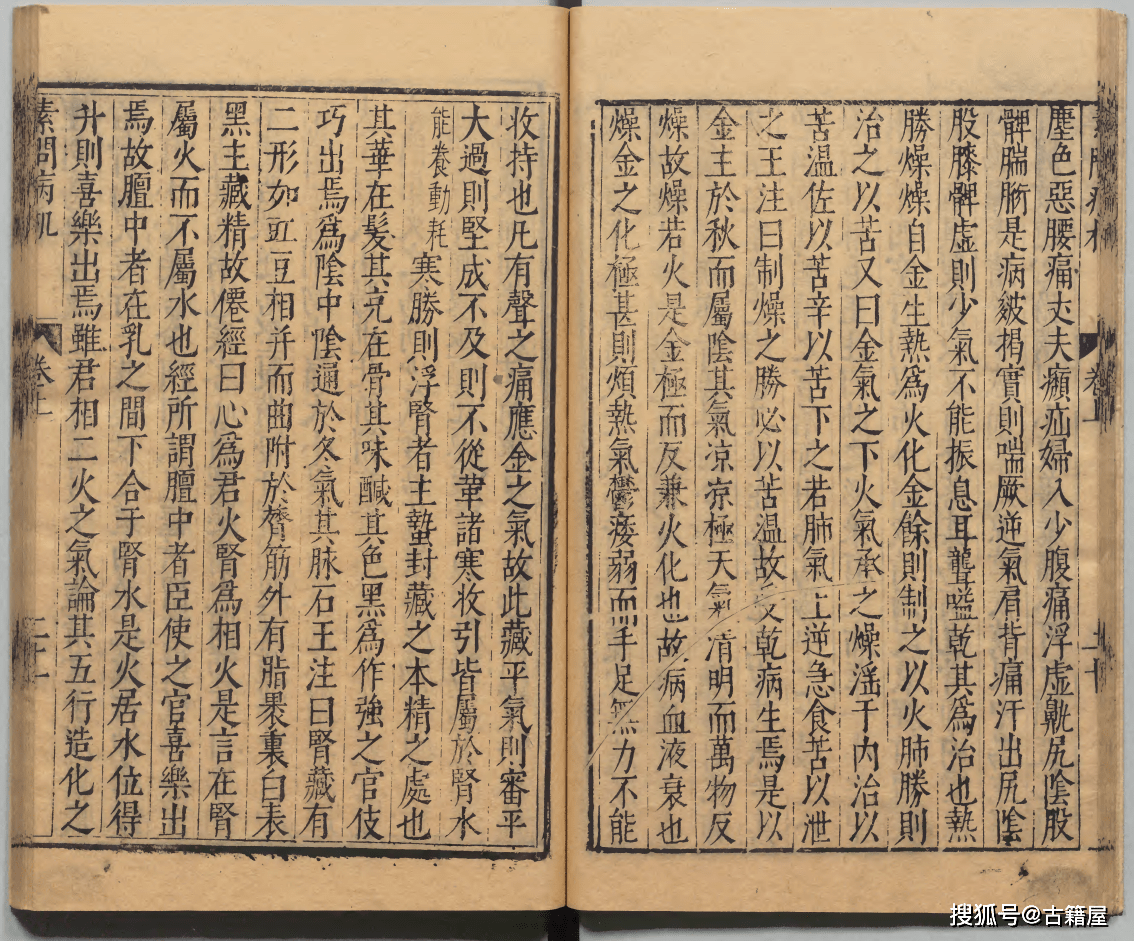 素問病机 卷上 二十
塵色惡腰痛丈夫㿗疝婦人少腹痛浮虛鼽尻陰股
髀腨胻是病皴揭實則喘厥逆氣肩背痛汗出尻陰
股膝髀虛則少氣不能振息耳聾嗌乾其為治也熱
勝燥燥自金生熱為火化金餘則制之以火肺勝則
治之以苦又曰金氣之下火氣承之燥淫于内治以
苦温佐以苦辛以苦下之若肺氣上逆急食苦以泄
之王注曰制燥之勝必以苦温故受乾病生焉是以
金主於秋而屬陰其氣凉凉極天氣清明而萬物反
燥故燥若火是金極而反兼火化也故病血液衰也
燥金之化極甚則煩熱氣鬱痿弱而手足無力不能
收持也凡有聲之痛應金之氣故此藏平氣則審平
大過則堅成不及則不從革諸寒收引皆屬於腎水
能養動耗 寒勝則浮腎者主蟄封藏之本精之處也
其華在髮其充在骨其味醎其色黑為作強之官伎
巧出焉為陰中陰通於冬氣其脉石王注曰腎藏有
二形如豇豆相并而曲附於膂筋外有脂裹裏白表
黑主藏精故僊經曰心為君火腎為相火是言在腎
屬火而不屬水也經所謂膻中者臣使之官喜樂出
焉故膻中者在乳之間下合于腎水是火居水位得
升則喜樂出焉雖君相二火之氣論其五行造化之
素問病机 卷上 二十一
搜狐号@古籍屋